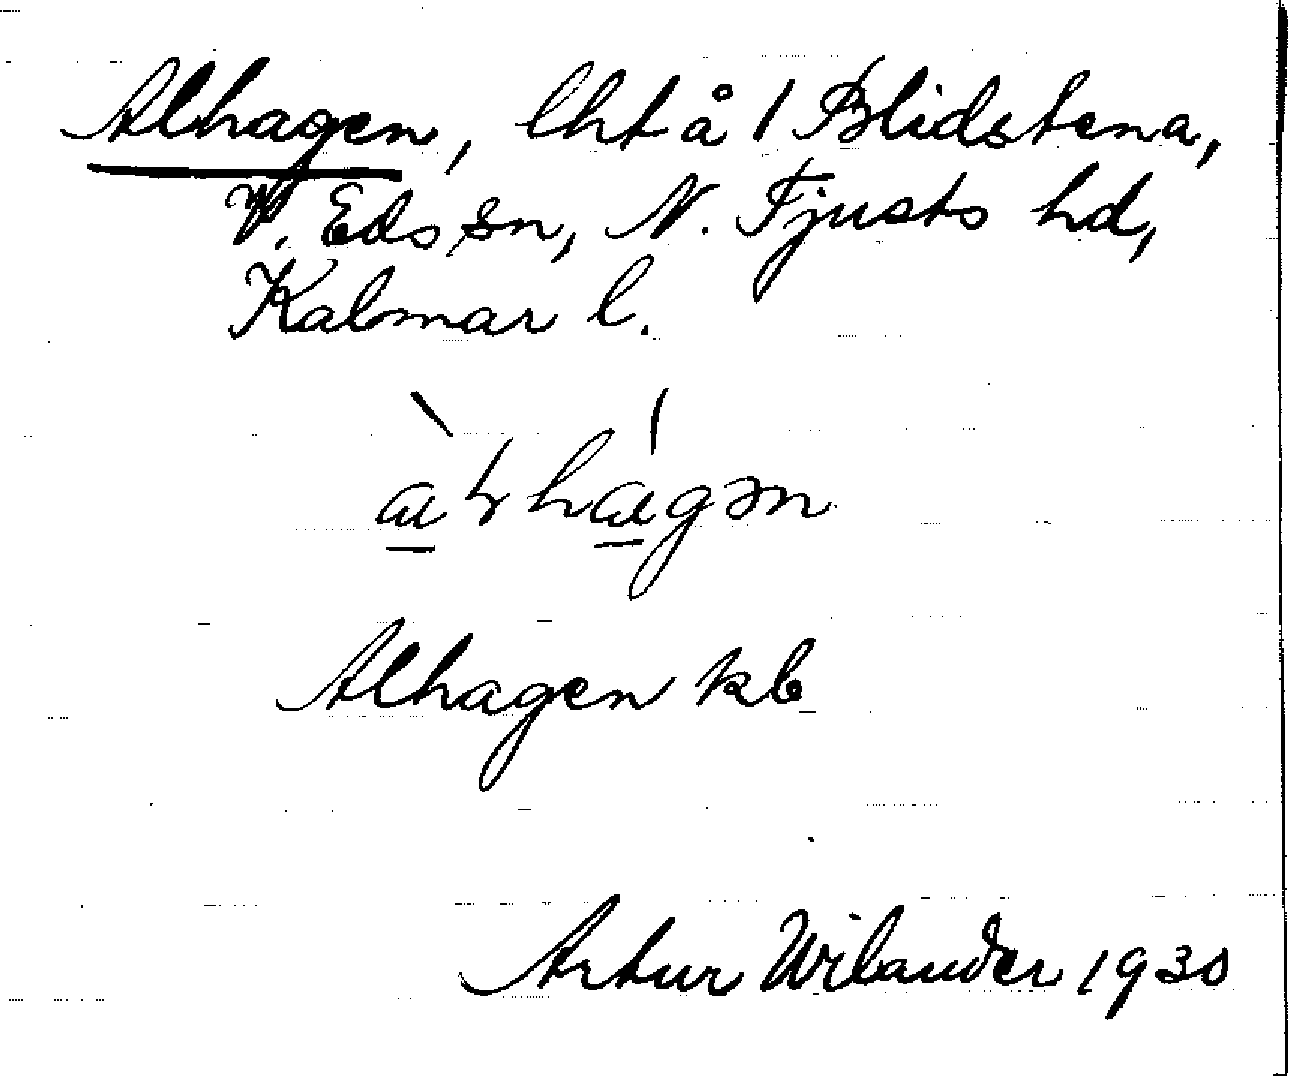 Alhagen, lht å 1 Blidstena,
V. Eds sn, N. Tjusts hd,
Kalmar l.
Alhagen kb
Artur Wilander 1930